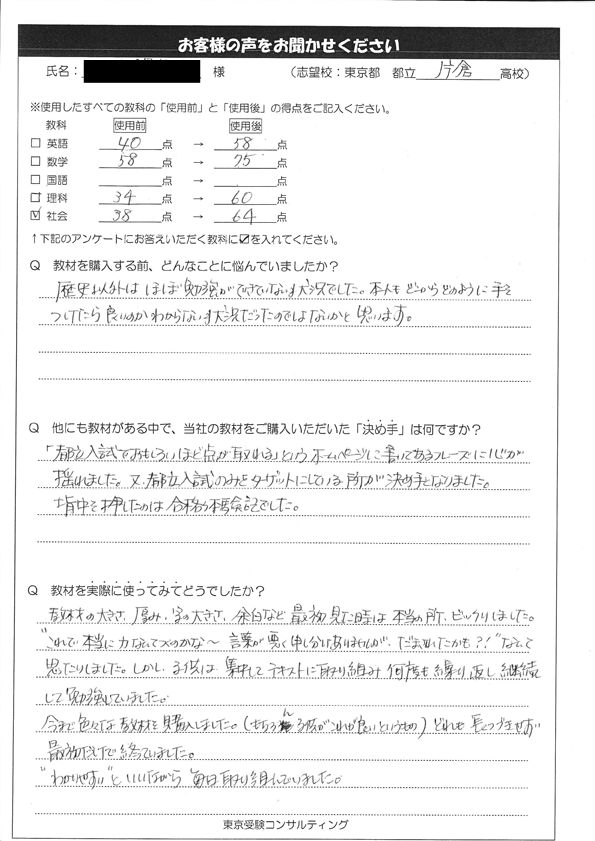 お客様の声をお聞かせください
氏名： 様 （志望校：東京都 都立 片倉 高校）
※使用したすべての教科の「使用前」と「使用後」の得点をご記入ください。
教科 使用前 使用後
□ 英語 40 点 → 58 点
□ 数学 58 点 → 75 点
□ 国語 点 → 点
□ 理科 34 点 → 60 点
☑ 社会 38 点 → 64 点
↑下記のアンケートにお答えいただく教科に☑を入れてください。
Q 教材を購入する前、どんなことに悩んでいましたか？
歴史以外は ほぼ勉強ができていない状況でした。本人も どこからどのように手を
つけたら良いのかわからない状況だったのではないかと思います。
Q 他にも教材がある中で、当社の教材をご購入いただいた「決め手」は何ですか？
「都立入試でおもしろいほど点が取れる」というホームページに書いてあるフレーズに心が
揺れました。又、都立入試のみをターゲットにしている所が決め手となりました。
背中を押したのは合格体験記でした。
Q 教材を実際に使ってみてどうでしたか？
教材の大きさ、厚み、字の大きさ、余白など最初見た時は本当の所、ビックリしました。
"これで本当に力なんてつくのかな〜 言葉が悪く申し分けありませんが、だまされたかも？！"なんて
思たりしました。しかし、子供は集中してテキストに取り組み 何度も繰り返し継続
して勉強していました。
今まで色々な教材を購入しました。（もちろん子供がこれが良いというもの）どれも長くつづきせず
最初だけで終ていました。
"わかりやすい"といいながら 毎日取り組んでいました。
東京受験コンサルティング